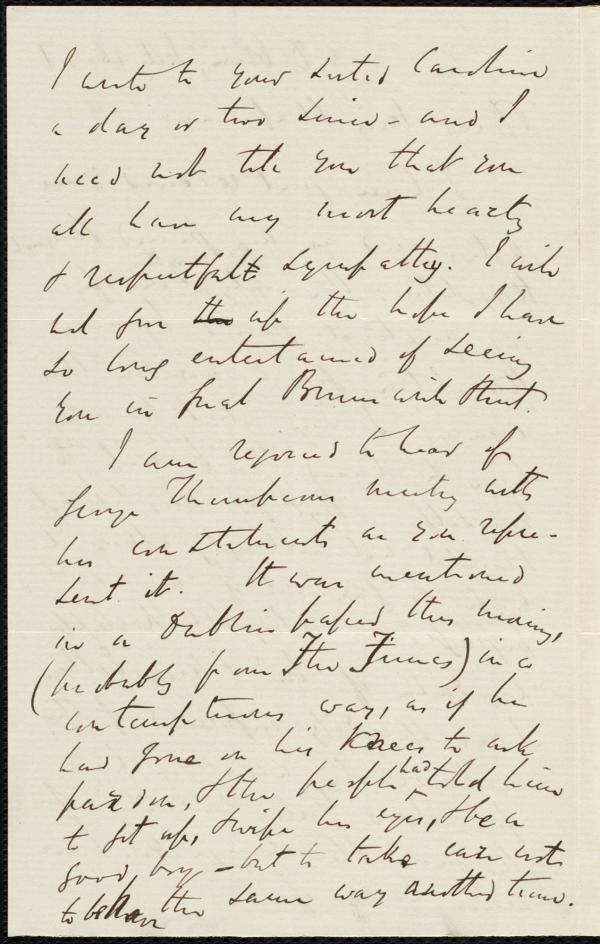 I wrote to your sister Caroline
a day or two since - and I
need not tell you that you
all have my most hearty
& respectful sympathy. I will
not give the up the hope I have
so long entertained of seeing
you in Great Brunswick Street.
I am rejoiced to hear of
George Thompson's meeting with
his constituents as you repre-
sent it. It was mentioned
in a Dublin paper this morning,
(probably from The Times) in a
contemptuous way, as if he
had gone on his knees to ask
pardon, & the people had told him
to get up, & wipe his eyes, & be a
good boy - but to take care not
to behave the same way another time.